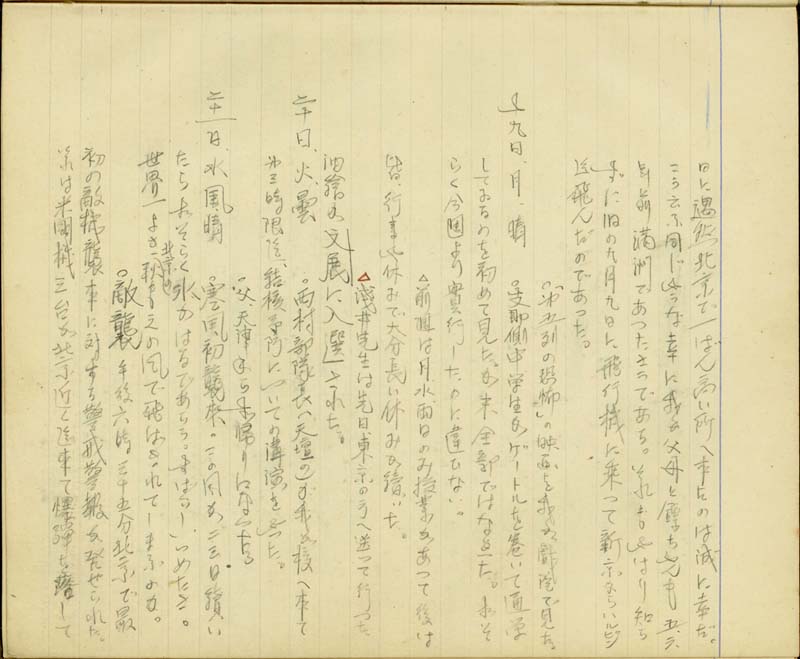 日に遇然北京で一ばん高い所へ来たのは誠に幸だ。
こう云ふ同じやうな幸に我が父母と厚ちやんも五六
年前満洲であつたさうである。それもやはり知ら
ずに旧の九月九日に飛行機に乗つて新京からハルピン
迄飛んだのであつた。
十九日、月、晴 「第五列の恐怖」の映画を我が部隊で見た。
支那側中学生がゲートルを巻いて通学
しておるのを初めて見た。が未全部ではなかった。おそ
らく今週より実行したのに違ひない。
△前週は月水両日のみ授業があつて後は
皆、行事や休みで大分長い休みが続いた。
△浅井先生は先日、東京の方へ送つて行つた
油絵が文展に入選された。
二十日、火、曇 西村部隊長(天壇の)が我が校へ来て
第三時限迄、結核予防についての講演をやつた。
父、天津から帰りになった。
二十一日、水、風晴 寒風初襲来。この風が二三日続い
たらおそらく氷がはるであらう
世界一よき北京の秋も
の風で飛ばされてしまふのか。
敵襲 午後六時三十五分北京で最
初の敵機襲来に対する警戒警報が発せられた。
米国機三台が北京近く迄来て爆弾も落して